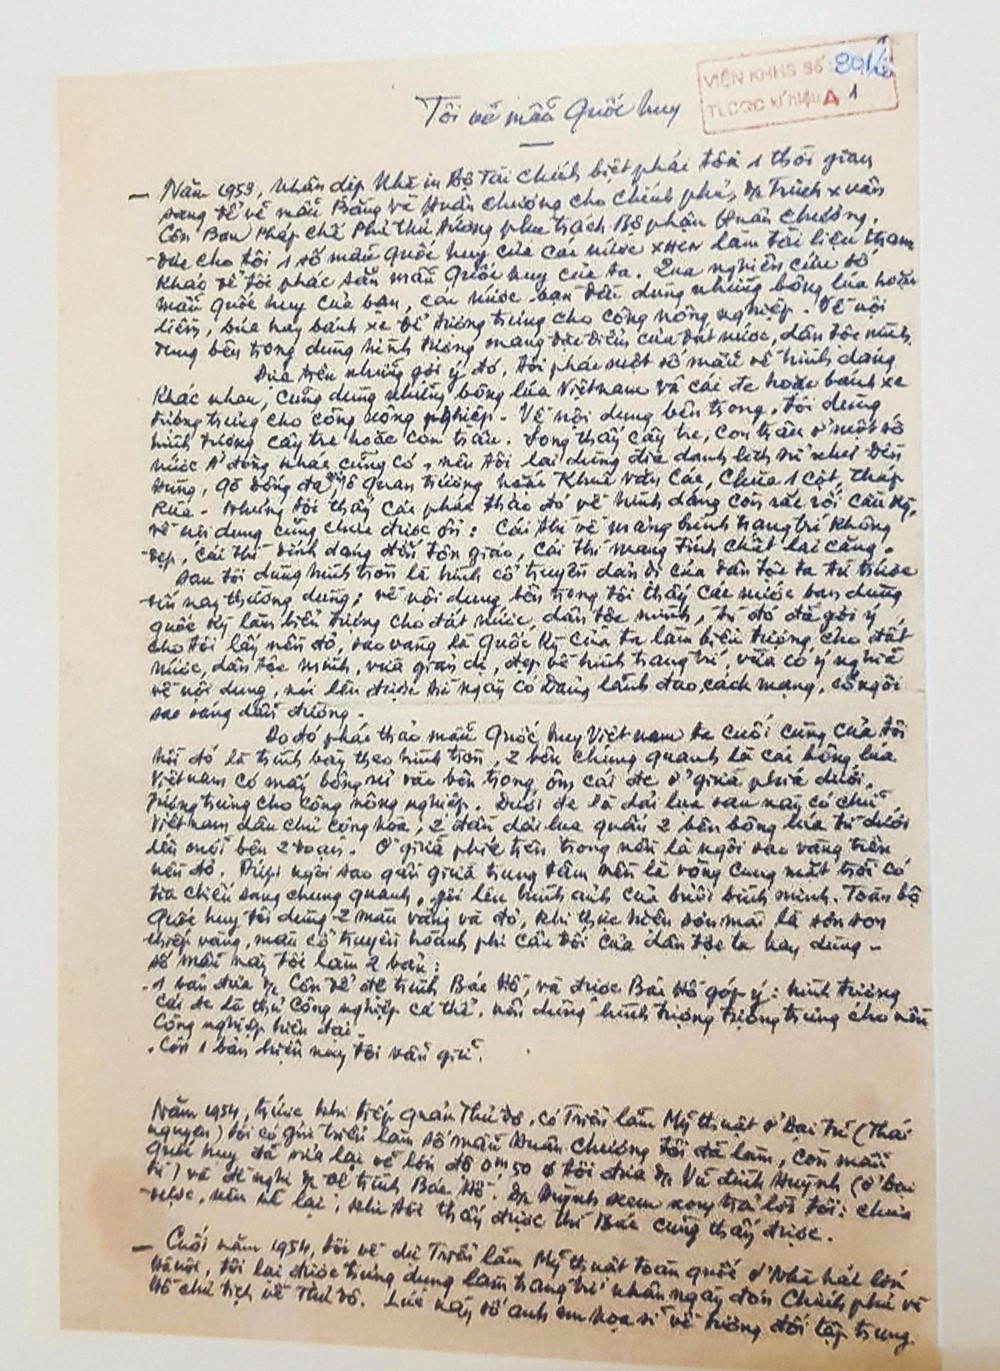 VIỆN KHHS Số: 801/
TLCQG kí hiệu A 1
Tôi vẽ mẫu Quốc huy
– Năm 1953, nhân dịp Nhà in Bộ Tài chính biệt phái tôi 1 thời gian
sang để vẽ mẫu Bằng và Huân chương cho chính phủ, đ/c Trần Xuân
Côn Ban Pháp chế Phủ Thủ tướng phụ trách Bộ phận Huân chương.
đưa cho tôi 1 số mẫu Quốc huy của các nước XHCN làm tài liệu tham
khảo để tôi phác sẵn mẫu Quốc huy của ta. Qua nghiên cứu số
mẫu Quốc huy của bạn, các nước bạn đều dùng những bông lúa hoặc
liềm, búa hay bánh xe để tượng trưng cho công nông nghiệp. Về nội
dung bên trong dùng hình tượng mang đặc điểm của đất nước, dân tộc mình.
Dựa trên những gợi ý đó, tôi phác một số mẫu về hình dáng
khác nhau, cũng dùng những bông lúa Việt nam và cái đe hoặc bánh xe
tượng trưng cho công nông nghiệp. Về nội dung bên trong, tôi dùng
hình tượng cây tre hoặc con trâu. Song thấy cây tre, con trâu ở một số
nước Á đông khác cũng có, nên tôi lại dùng địa danh lịch sử như Đền
Hùng, Gò Đống đa, quan trường hoặc Khuê văn các, Chùa 1 cột, Tháp
Rùa. Nhưng tôi thấy các phác thảo đó về hình dáng còn rắc rối cầu kỳ,
về nội dung cũng chưa được ổn: Cái thì về mảng hình trang trí không
đẹp, cái thì dính dáng đến tôn giáo, cái thì mang tính chất lai căng.
Sau tôi dùng hình tròn là hình cổ truyền dân dã của dân tộc ta từ trước
đến nay thường dùng; về nội dung bên trong tôi thấy các nước bạn dùng
quốc kỳ làm biểu tượng cho đất nước, dân tộc mình, từ đó đã gợi ý
cho tôi lấy nền đỏ, sao vàng là Quốc kỳ của ta làm biểu tượng cho đất
nước, dân tộc mình, vừa giản dị, đẹp về hình trang trí, vừa có ý nghĩa
về nội dung, nói lên được từ ngày có Đảng lãnh đạo cách mạng, có ngôi
sao sáng dẫn đường.
Do đó phác thảo mẫu Quốc huy Việt nam ta cuối cùng của tôi
hồi đó là trình bày theo hình tròn, 2 bên chung quanh là các bông lúa
Việt nam có mấy bông rủ vào bên trong, ôm cái đe ở giữa phía dưới,
tượng trưng cho công nông nghiệp. Dưới đe là dải lụa sau này có chữ
Việt nam dân chủ cộng hòa, 2 đầu dải lụa quấn 2 bên bông lúa từ dưới
lên mỗi bên 2 đoạn. Ở giữa phía trên trong nền là ngôi sao vàng trên
nền đỏ. Dưới ngôi sao gần giữa trung tâm nền là vòng cung mặt trời có
tia chiếu sáng chung quanh, gợi lên hình ảnh của buổi bình minh. Toàn bộ
Quốc huy tôi dùng 2 màu vàng và đỏ, khi thực hiện sơn mài là sơn son
thiếp vàng, màu cổ truyền hoành phi câu đối của dân tộc ta hay dùng.
Số mẫu này tôi làm 2 bản:
. 1 bản đưa đ/c Côn để đệ trình Bác Hồ, và được Bác Hồ góp ý: hình tượng
cái đe là thủ công nghiệp cá thể, nên dùng hình tượng tượng trưng cho nền
Công nghiệp hiện đại.
. Còn 1 bản hiện nay tôi vẫn giữ.
Năm 1954, trước khi tiếp quản Thủ đô, có Triển lãm Mỹ thuật ở Đại Từ (Thái
nguyên) tôi có gửi triển lãm số mẫu Huân chương tôi đã làm, còn mẫu
Quốc huy đã sửa lại vẽ lớn độ 0m50 Ø tôi đưa đ/c Vũ đình Huỳnh (ở Đại
từ) và đề nghị đ/c đệ trình Bác Hồ. Đ/c Huỳnh xem xong trả lời tôi: chưa
được, nên vẽ lại; khi tôi thấy được thì Bác cũng thấy được.
– Cuối năm 1954, tôi về dự Triển lãm Mỹ thuật toàn quốc ở Nhà hát lớn
Hà nội, tôi lại được trưng dụng làm trang trí nhân ngày đón Chính phủ và
Hồ chủ tịch về Thủ đô. Lúc này số anh em họa sĩ về tương đối tập trung.